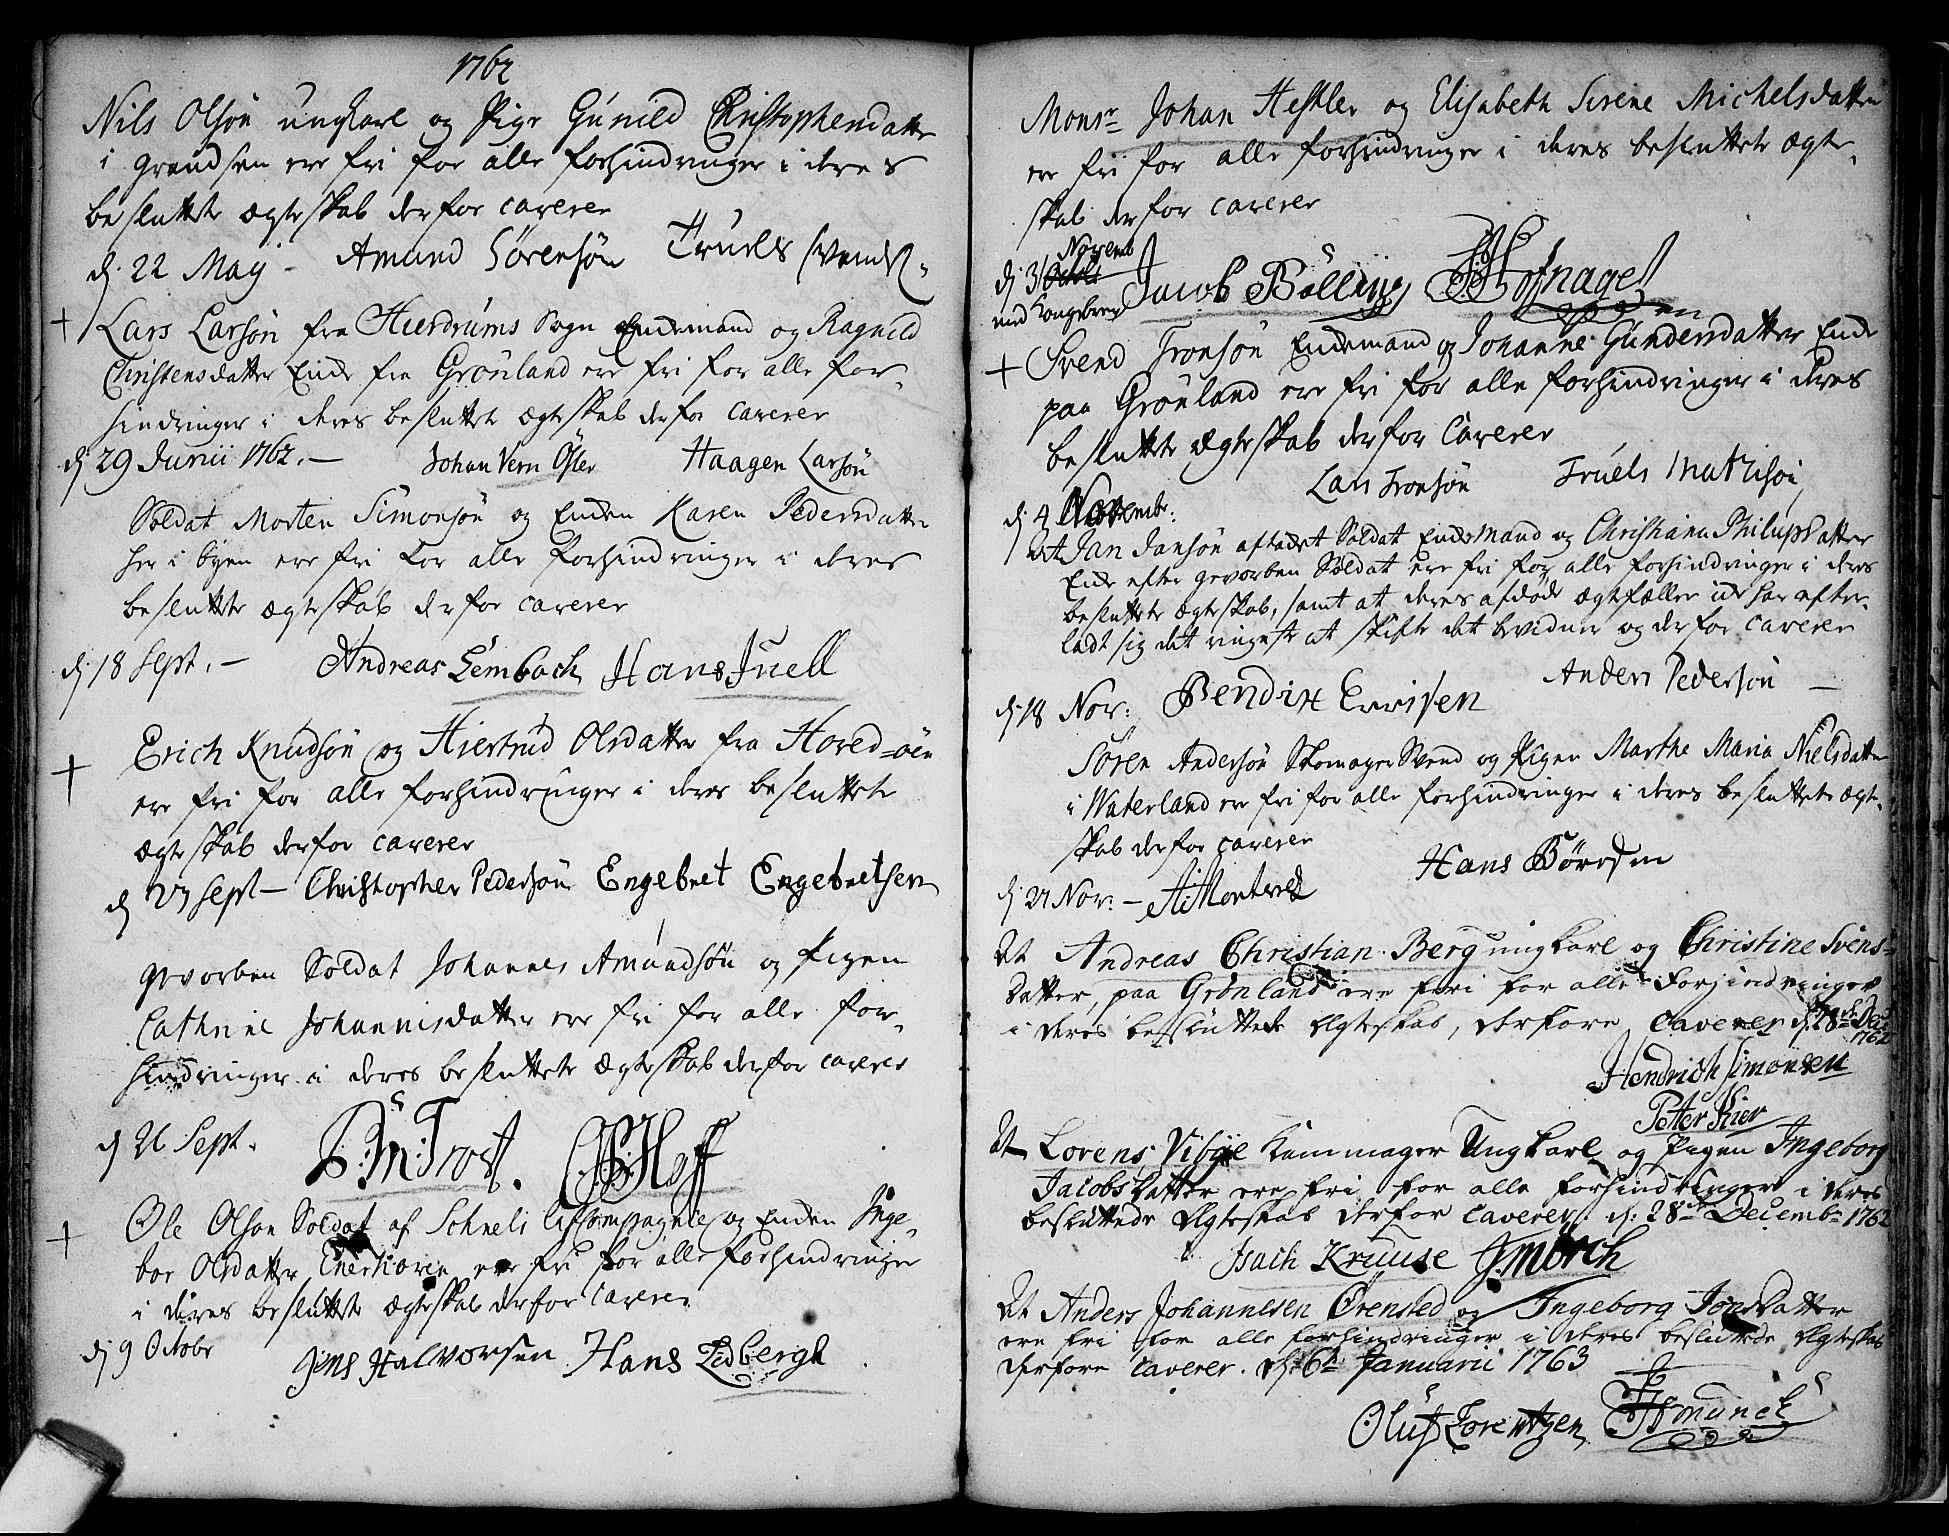 1762
Nils Olsøn ungkarl og Pige Gunild Christophersdatter
i Grændsen ere fri for alle forhindringer i deres
besluttet ægteskab derfor caverer
d. 22 May - Amund Sörensön Truels
Lars Larsøn fra Sogn Enkemand og Ragnild
Christensdatter Enke fra Grønland ere fri for alle for-
hindringer i deres besluttet ægteskab derfor caverer
d. 29 Junii 1762. - Johan Haagen Larsøn
Soldat Morten Simonsøn og Enken Karen Pedersdatter
her i byen ere fri for alle forhindringer i deres
besluttet ægteskab derfor caverer
d. 18 Sept. - Andreas Lembach Hans Juell
Erich Knudsøn og Olsdatter fra Hoved-öen
ere fri for alle forhindringer i deres besluttet
ægteskab derfor caverer
d. 27 Sept - Christopher Pedersøn Engebret Engebretsen
gevorben Soldat Johannes Amundsøn og Pigen
Cathrine Johannisdatter ere fri for alle for-
hindringer i deres besluttet ægteskab derfor caverer
d. 21 Sept. P:M:Trost. Hoff
Ole Olson Soldat af Schnels og Enken Inge-
bor Olsdatter ere fri for alle forhindringer
i deres besluttet ægteskab derfor caverer
d. 9 Octobr Jens Halvorsen Hans Lidbergh
Monsr Johan Heftler og Elisabeth Sirene Michelsdatter
ere fri for alle forhindringer i deres besluttet ægte-
skab derfor caverer
Novemb
d. 3 Octobr Jacob Bölling Hofnagel
med Kongebrev
Svend Tronsøn Enkemand og Johanne Gundersdatter Enke
paa Grønland ere fri for alle forhindringer i deres
besluttet ægteskab derfor Caverer
Lars Tronsøn Truels Mathisøn
d. 4 Novembr:
At Jan Jansøn aftaket Soldat Enkemand og Christiana Philupsdatter
Enke efter gevorben Soldat ere fri for alle forhindringer i deres
besluttet ægteskab, samt at deres afdøde ægtefæller ikke har efter-
ladt sig det ringeste at skifte det bevidner og derfor caverer
Anders Pedersøn -
d. 18 Nor: Bendix Errisen
Søren Andersøn Skomager Svend og Pigen Marthe Maria Nielsdatter
i Waterland ere fri for alle forhindringer i deres besluttet ægte-
skab derfor caverer
Hans Börresen
d. 21 Nor: -
At Andreas Christian Berg ungkarl og Christine Svens-
datter, paa Grønland ere frie for alle Forhindringer
i deres besluttede Ægteskab, derfore caverer d. 18de Dec
1762
Hendrich Simonsen
Petter Kier
At Lorens Vibÿe Kammager Ungkarl og Pigen Ingeborg
Jacobsdatter ere fri for alle forhindringer i deres
besluttede Ægteskab derfor caverer. d: 28de Decembr 1762
Isach Kruuse J. Mörch
At Anders Johannesen Örensted og Ingeborg Jonsdatter
ere fri for alle forhindringer i deres besluttede Ægteskab
derfore caverer. d: 6te Januarii 1763
Oluf Lorentzen Munck